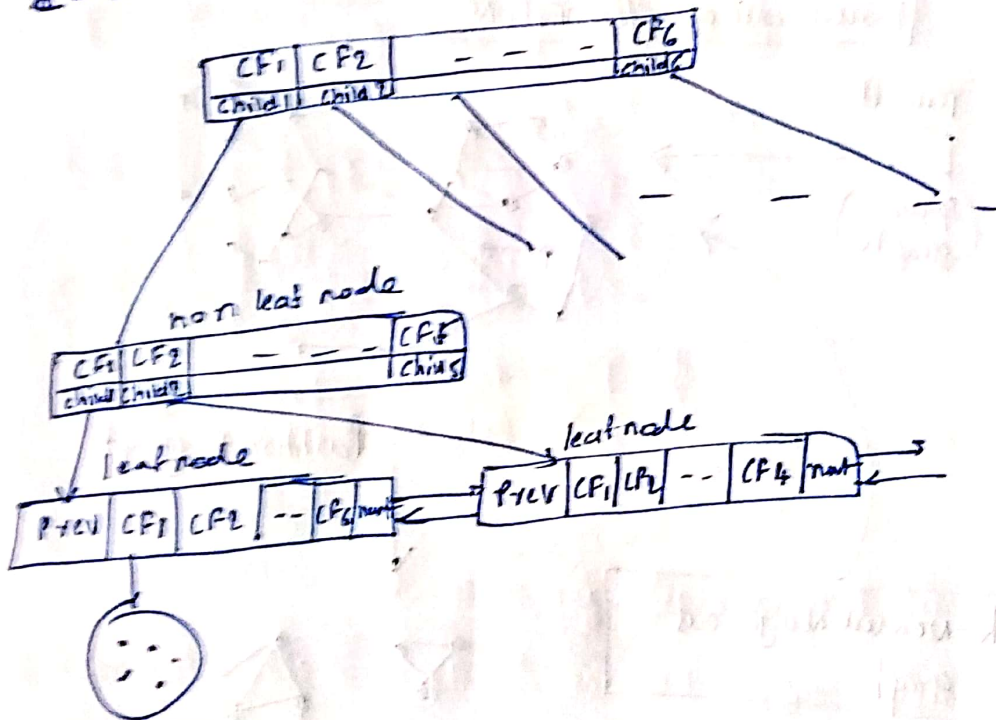 CF1 CF2 - - - CF6
child1 child2 child6
non leaf node
CF1 CF2 - - - CF5
child1 child2 child5
leaf node
leaf node
Prev CF1 CF2 -- CF6 next
Prev CF1 CF2 -- CF4 next